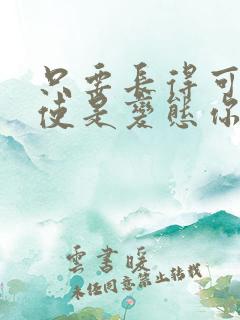 只要長得可
使是變態你
雲書暖
未經同意禁止轉載